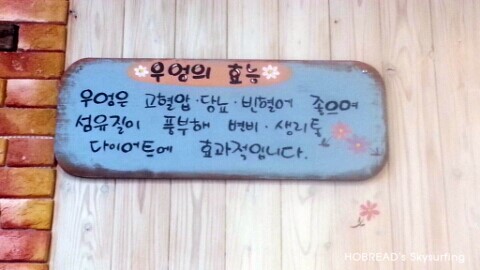 우엉의 효능
우엉은 고혈압·당뇨·빈혈에 좋으며
섬유질이 풍부해 변비·생리통
다이어트에 효과적입니다.
HOBREAD's Skysurfing